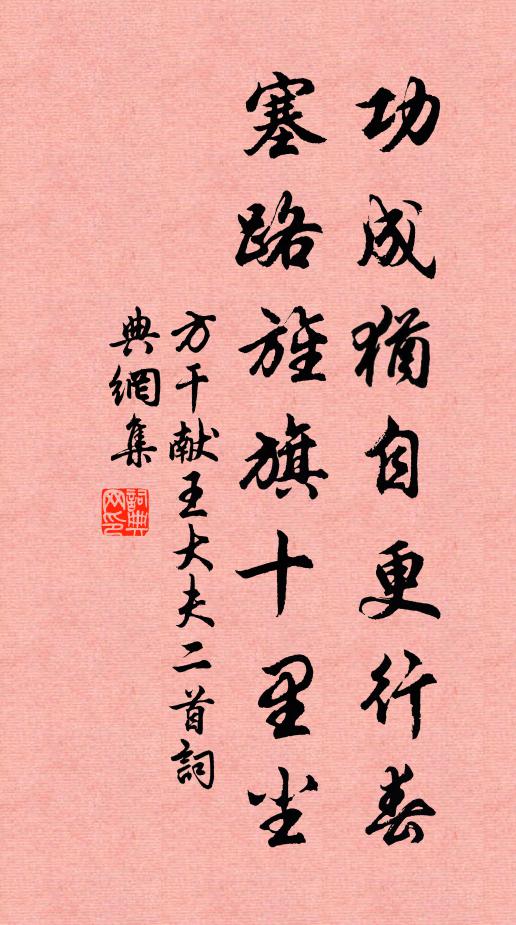 功成猶自更行春
塞路旌旗十里尘
方干献王大夫二首詞
典網集
詞典网印